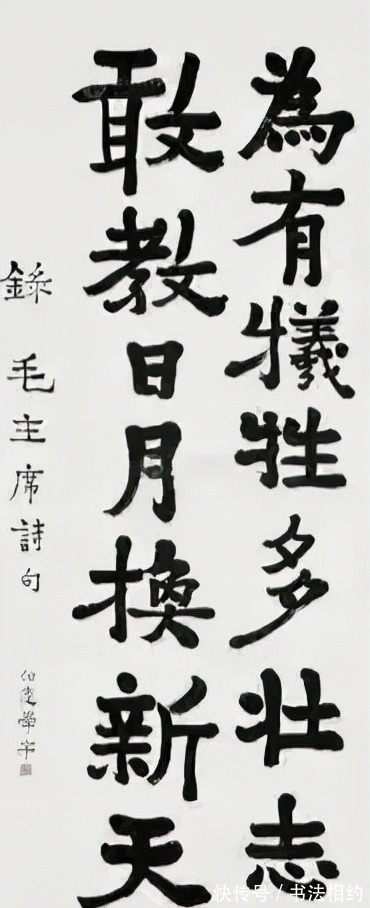 為有犧牲多壯志
敢教日月換新天
錄 毛主席詩句
伯
快传号／书法相约